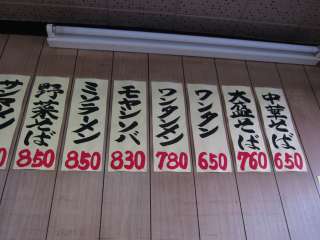 中華そば
650
大盛そば
760
ワンタン
650
ワンタンメン
780
モヤシソバ
830
ミソラーメン
850
野菜そば
850
サンマメン
0